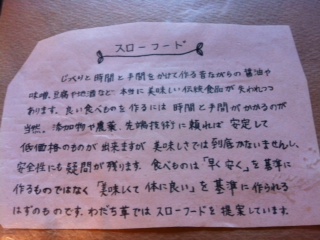 スローフード
じっくりと時間と手間をかけて作る昔ながらの醤油や
味噌、豆腐や地酒など、本当に美味しい伝統食品が失われつつ
あります。良い食べものを作るには時間と手間がかかるのが
当然。添加物や農薬、先端技術に頼れば安定して
低価格のものが出来ますが美味しさでは到底かないませんし、
安全性にも疑問が残ります。食べものは「早く安く」を基準に
作るものではなく「美味しくて体に良い」を基準に作られる
はずのものです。わだち草ではスローフードを提案しています。